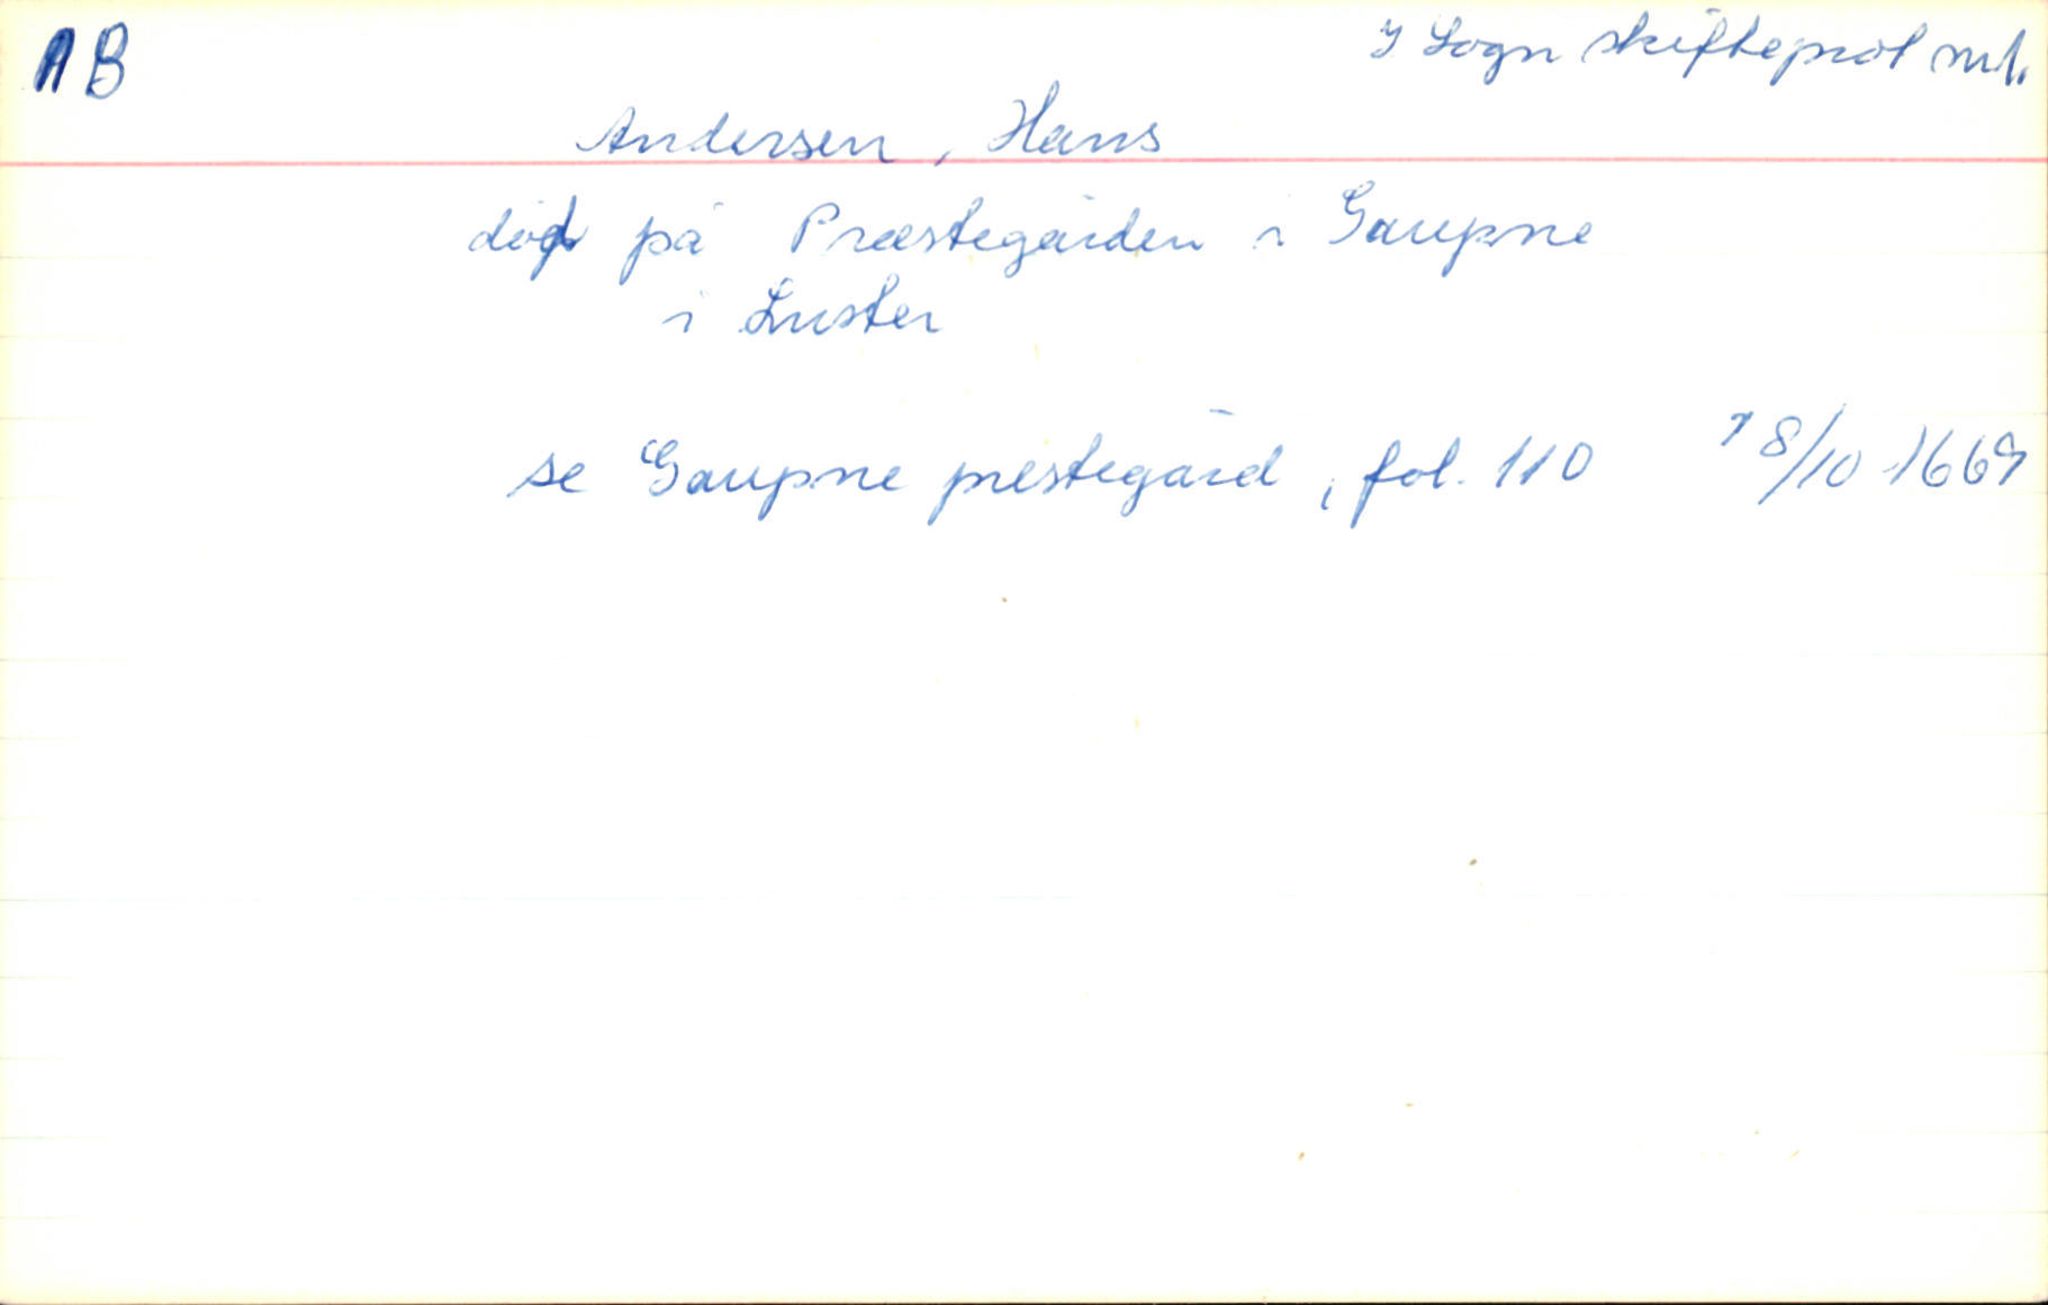 AB
Y Sogn skifteprot nr 1.
Andersen, Hans
død på Præstegården i Gaupne
i Luster
se Gaupne prestegård, fol. 110 8/10 1669